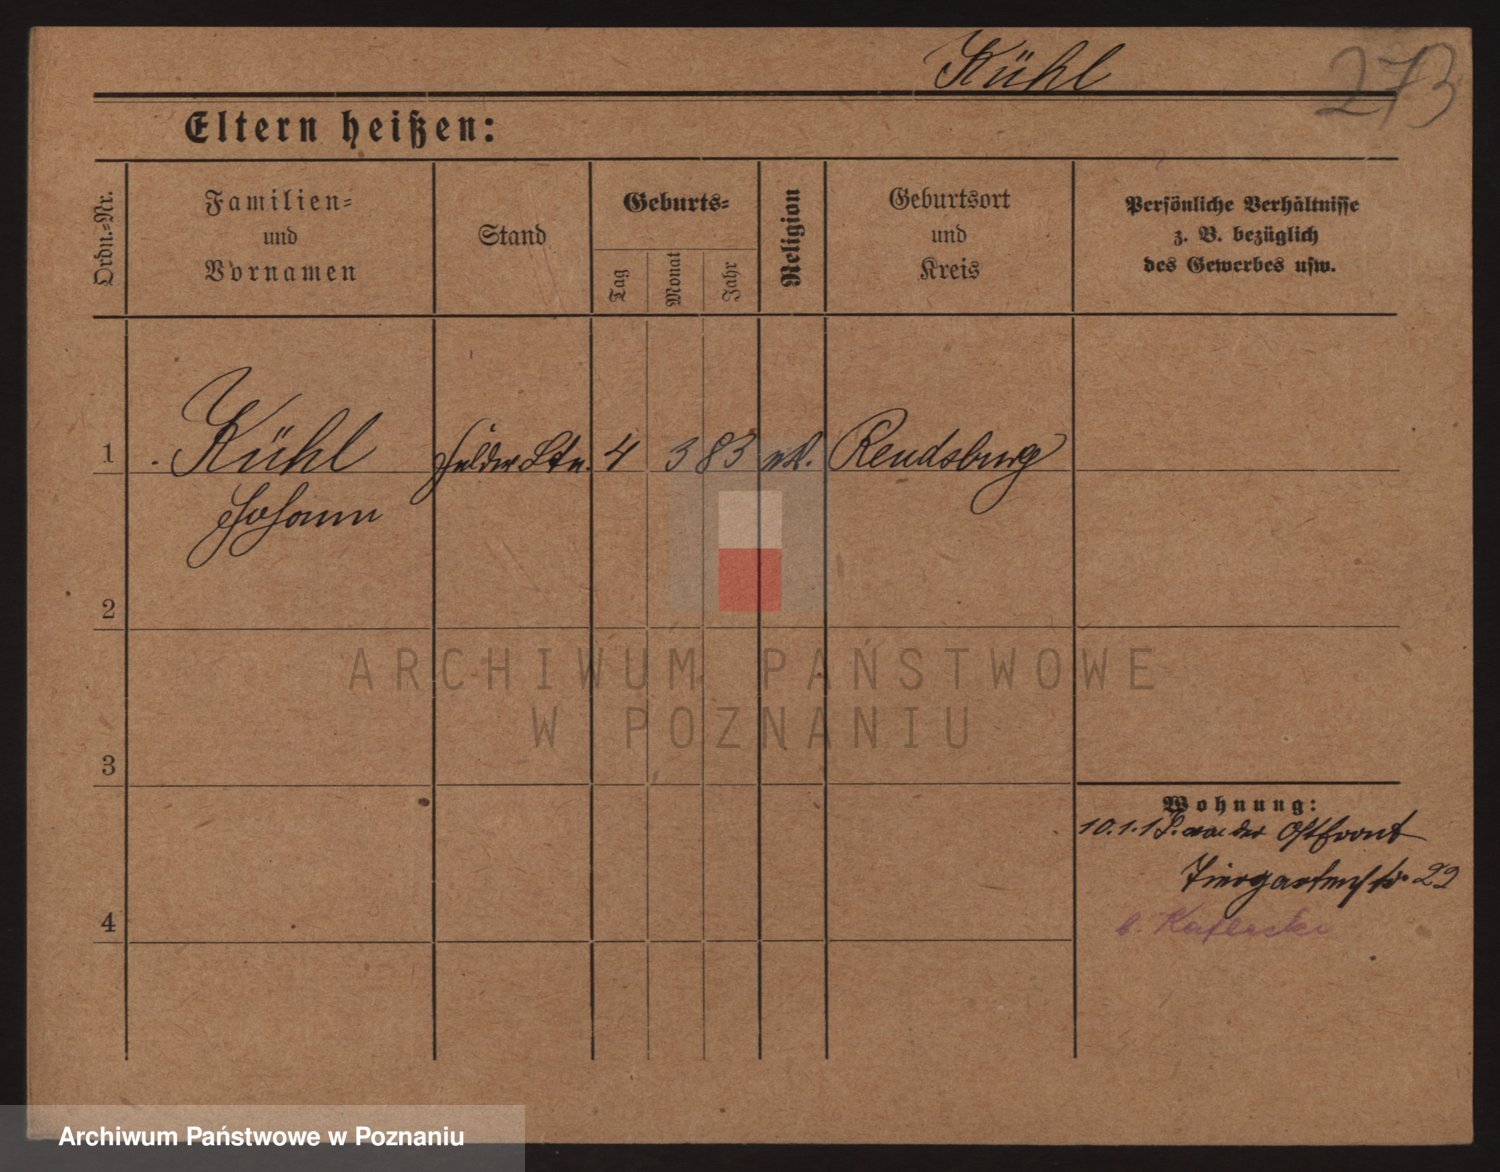 Kühl
273
Eltern heißen:
Ordn.-Nr.
Familien-
und
Vornamen
Stand
Geburts-
Tag
Monat
Jahr
Religion
Geburtsort
und
Kreis
Persönliche Verhältnisse
z. B. bezüglich
des Gewerbes usw.
1 Kühl 4 3 83 Rendsburg
Johann
2
ARCHIWUM PAŃSTWOWE
W POZNANIU
3
Wohnung:
10.1.18. von der Ostfront
Tiergartenstr. 22
4
b.
Archiwum Państwowe w Poznaniu